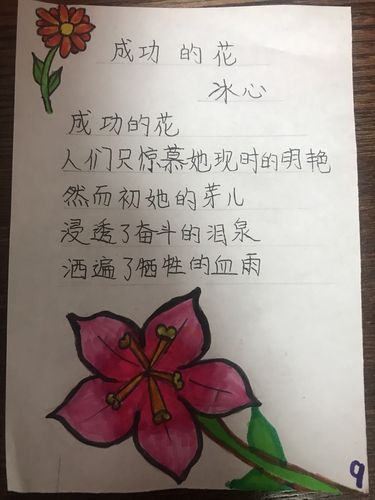 成功的花
冰心
成功的花
人们只惊慕她现时的明艳
然而初她的芽儿
浸透了奋斗的泪泉
洒遍了牺牲的血雨
9